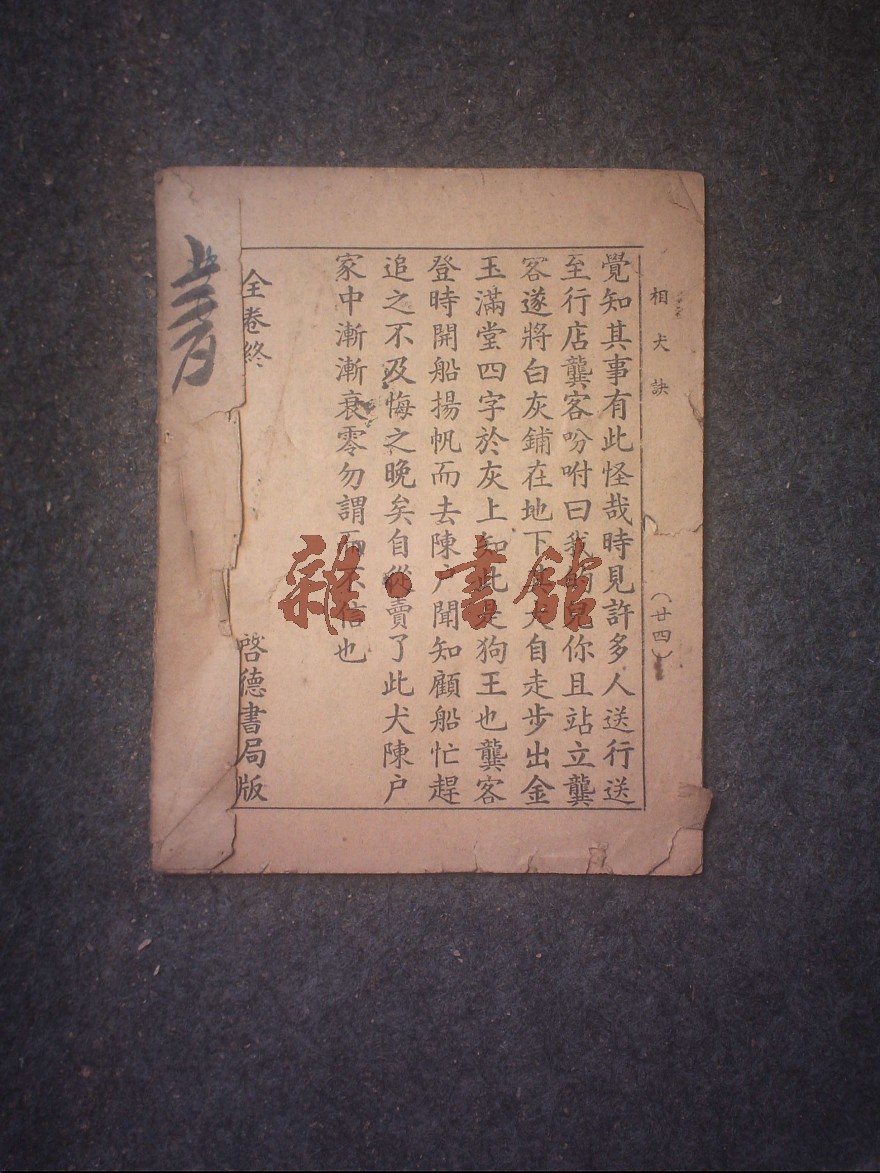 相犬訣
(廿四)
覺知其事有此怪哉時見許多人送行送
至行店龔客吩咐曰我兒你且站立龔
客遂將白灰鋪在地下其犬自走步出金
玉滿堂四字於灰上知此是狗王也龔客
登時開船揚帆而去陳户聞知顧船忙趕
追之不及悔之晚矣自從賣了此犬陳户
家中漸漸衰零勿謂而不信也
全卷終
啓德書局版
雜·書館